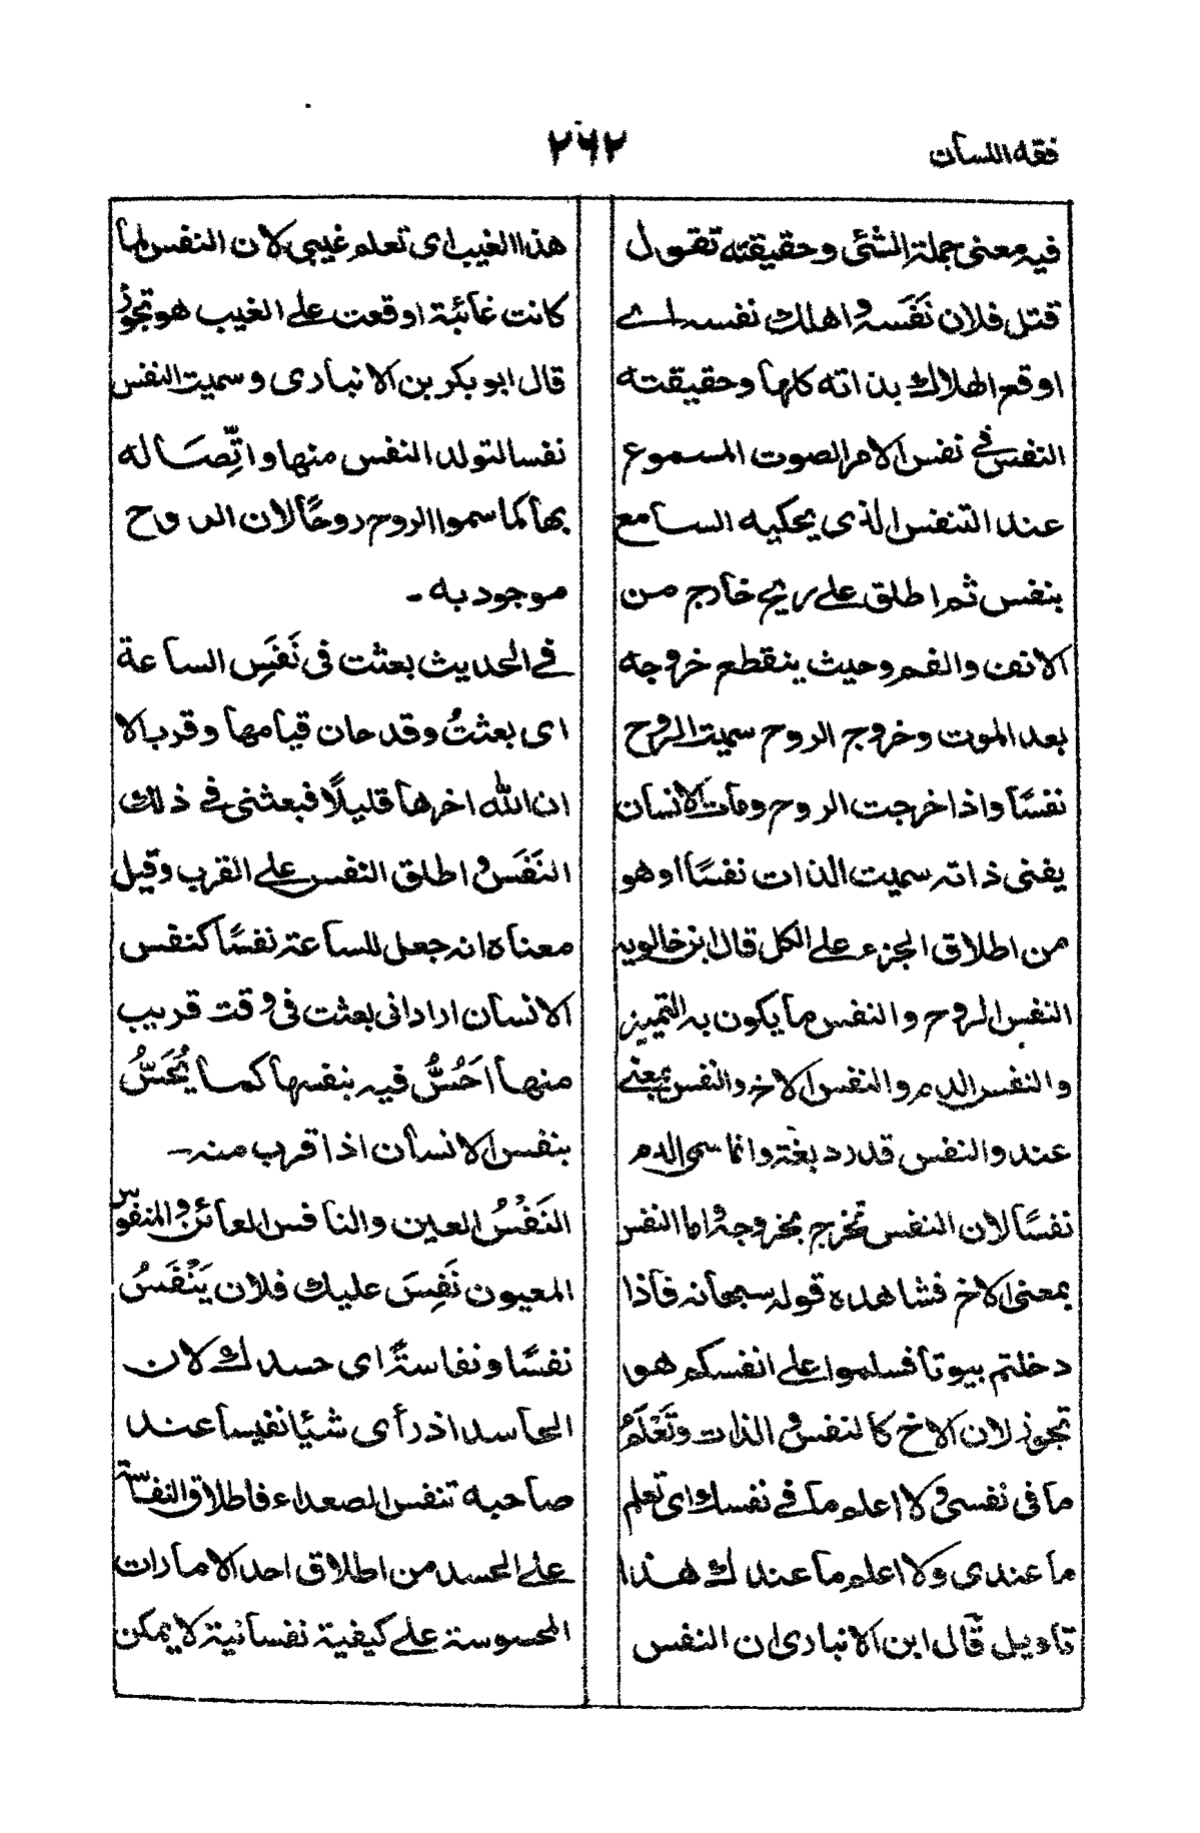 فقه اللسان
٢٦٢
فيه معنى جملة الشئ وحقيقته تقول
قتل فلان نَفَسَه واهلك نفسه اے
اوقع الهلاك بذاته كلها وحقيقته
النفس فى نفس الامر الصوت المسموع
عند التنفس الذى يحكيه السامع
بنفس ثم اطلق على ريح خارج من
الانف والفم وحيث ينقطع خروجه
بعد الموت وخروج الروح سميت الروح
نفسًا واذا خرجت الروح ومات الانسان
يفنى ذاته سميت الذات نفسًا اوهو
من اطلاق الجزء على الكل قال ابن خالويه
النفس الروح والنفس ما يكون به التميز
والنفس الدم والنفس الاخ والنفس بمعنى
عند والنفس قدر دبغة وانما سمى الدم
نفسًا لان النفس تخرج بخروجه واما النفس
بمعنى الاخ فشاهده قوله سبحانه فاذا
دخلتم بيوتا فسلموا على انفسكم هو
تجوز لان الاخ كالنفس و الذات وتَعْلَمُ
ما فى نفسى ولا اعلم ما فى نفسك اى تعلم
ما عندى ولا اعلم ما عندك هذا
تاويل قال ابن الانبارى ان النفس
هذا الغيب اى تعلم غيبى لان النفس لما
كانت غائبة اوقعت على الغيب هو تجوز
قال ابو بكر بن الانبارى وسميت النفس
نفسا لتولد النفس منها واتِّصَاله
بها كما سموا الروح روحًا لان الروح
موجود به ۔
فى الحديث بعثت فى نَفَسِ الساعة
اى بعثتُ وقد حان قيامها وقرب الا
ان الله اخرها قليلًا فبعثنى فى ذلك
النَفَس و اطلق النفس على القرب وقيل
معناه انه جعل للساعة نفسًا كنفس
الانسان اراد انى بعثت فى وقت قريب
منها اَحُسُّ فيه بنفسها كما يُحَسُّ
بنفس الانسان اذا قرب منه۔
النَفْسُ العين والنافس العائن والمنفوس
المعيون نَفِسَ عليك فلان يَنْفَسُ
نفسًا ونفاسةً اى حسدك لان
الحاسد اذ رأى شيًا نفيسا عند
صاحبه تنفس الصعداء فاطلاق النفاسة
على الحسد من اطلاق احد الامارات
المحسوسة على كيفية نفسانية لا يمكن